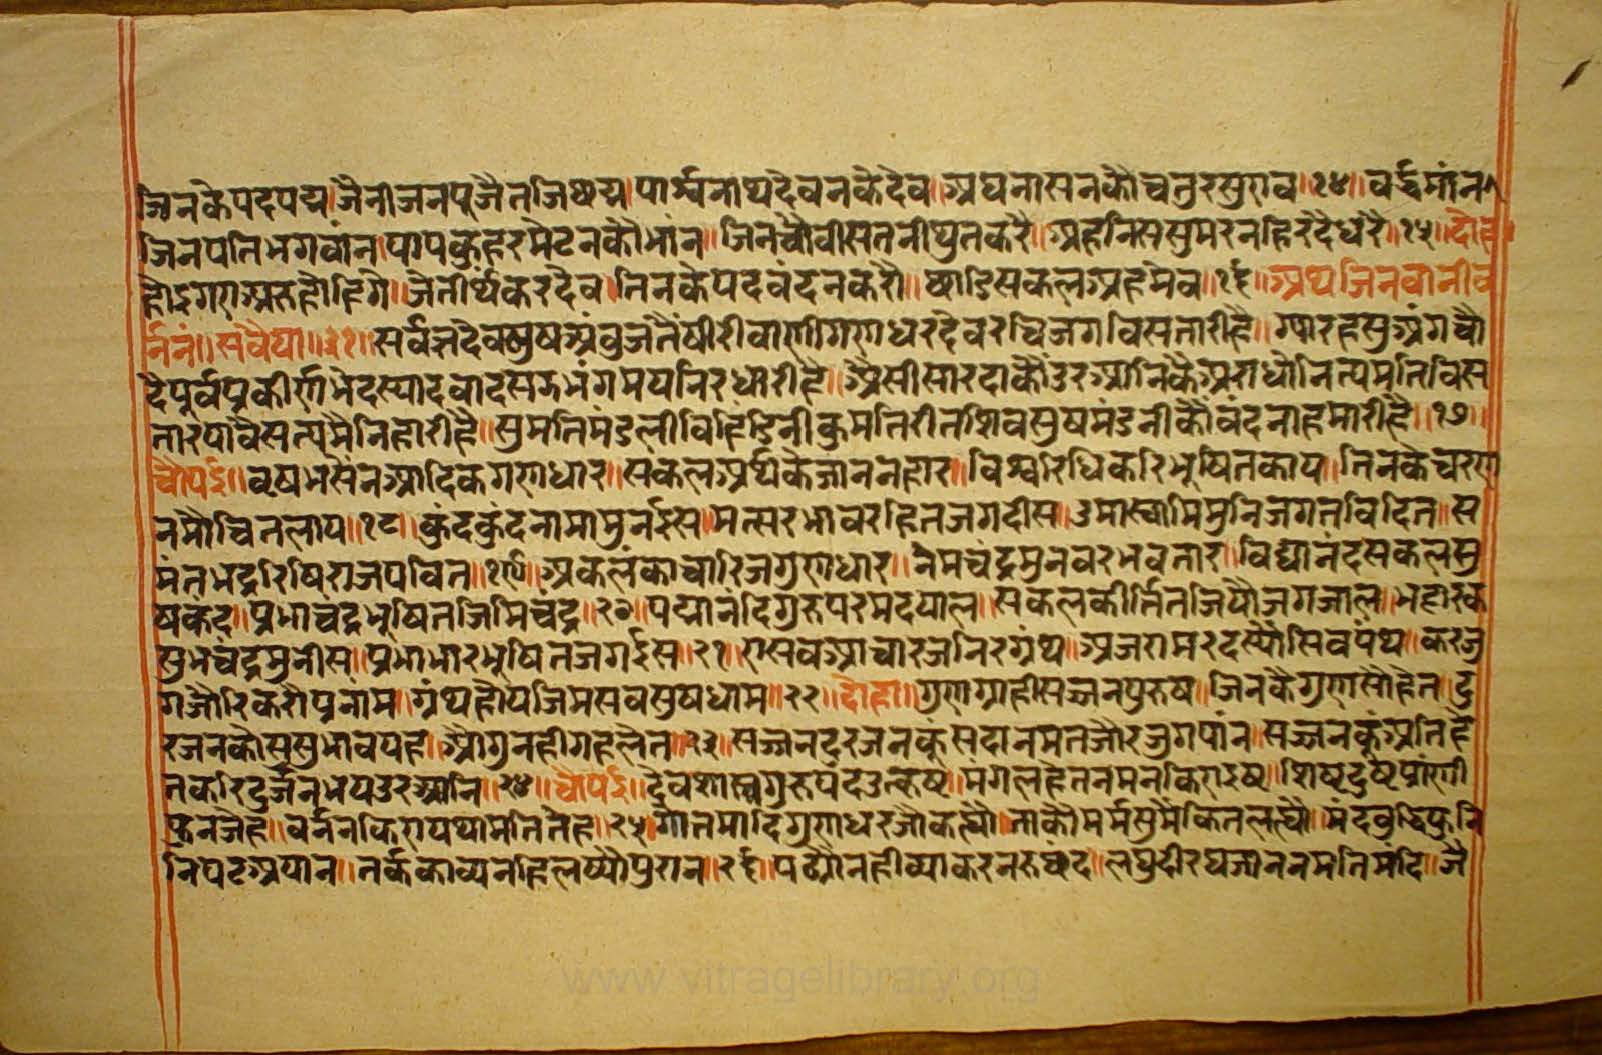 जिनकेपदपद्म।जैनीजनपूजैतजिछद्म।पार्श्वनाथदेवनकेदेव।अघनासनकौचतुरसुराव॥१४॥वर्द्धमांन
जिनपतिभगवांन।पापकुहरमेटनकौभांन॥जिनचौवीसतनीथुतकरै॥अहनिससुमरनहिरदैधरै॥१५॥दोहा
होइगएअरुहोहिगे॥जेतीर्थंकरदेव।तिनकेपदवंदनकरौ॥छाडिसकलअहमेव॥१६॥अथजिनवानीव
र्ननं॥सवैया॥३१॥सर्वज्ञदेवमुषअंवुजतैंषीरीवाणीगणधरदेवरचिजगविसतारीहै॥ग्यारहसुअंगचौ
दैपूर्वप्रकीर्णभेदस्यादवादसप्तभंगमयनिरधारीहै॥अैसीसारदाकौंउरआनिकैअराधौनित्यमतिविस
तारपावैसत्यमैनिहारीहै॥सुमतिमंडलीविहंडिनीकुमतिरीतशिवसुषमंडनीकौवंदनाहमारीहै॥१७॥
चौपई॥वृषभसेनआदिकगणधार॥सकलअर्थकेजाननहार॥विश्वरिधिकरिभूषितकाय॥तिनकेचरण
नमौचितलाय॥१८॥कुंदकुंदनामामुनईस।मत्सरभावरहितजगदीस।उमास्वामिमुनिजगतविदित॥स
मंतभद्ररिषिराजपवित॥१९॥अकलंकाचारिजगुणधार॥नेमचंद्रमुनवरभवतार॥विद्यानंदसकलसु
षकंद॥प्रभाचंद्रभूषितजिमिचंद्र॥२०॥पद्मानंदिगुरुपरमदयाल॥सकलकीर्तितजियौजगजाल॥भट्टारक
सुभचंद्रमुनीस॥प्रभाभारभूषितजगईस॥२१॥एसवआचारजनिरग्रंथ॥अजरामरदर्स्यौसिवपंथ॥करजु
गजोरिकरौप्रनाम॥ग्रंथहौयजिमसवसुषधाम॥२२॥दोहा॥गुणग्राहीसज्जनपुरुष॥जिनकैगुणसौहेत॥दु
रजनकौसुसुभावयह॥औगुनहीगहलेत॥२३॥सज्जनदुरजनकुंसदानमतजोरजुगपांन॥सज्जनकुंअतिहे
तकरिदुर्जनभयउरआनि॥२४॥चौपई॥देवशास्त्रगुरुपदउत्कष्ट॥मंगलहेतनमनकिएइष्ट॥शिष्टदुष्टप्रांणी
फुनजेह॥वर्ननकिएयथामतितेह॥२५॥गौतमादिगुणधरजोकह्यौ॥ताकौमर्मसुमैकितलह्यौ॥मंदवुद्धिफुनि
निपटअयान॥तर्ककाव्यनहिलष्यौपुरान॥२६॥पढ्यौनहीव्याकरनरुछंद॥लघुदीरघजाननमतिमंदि॥जै